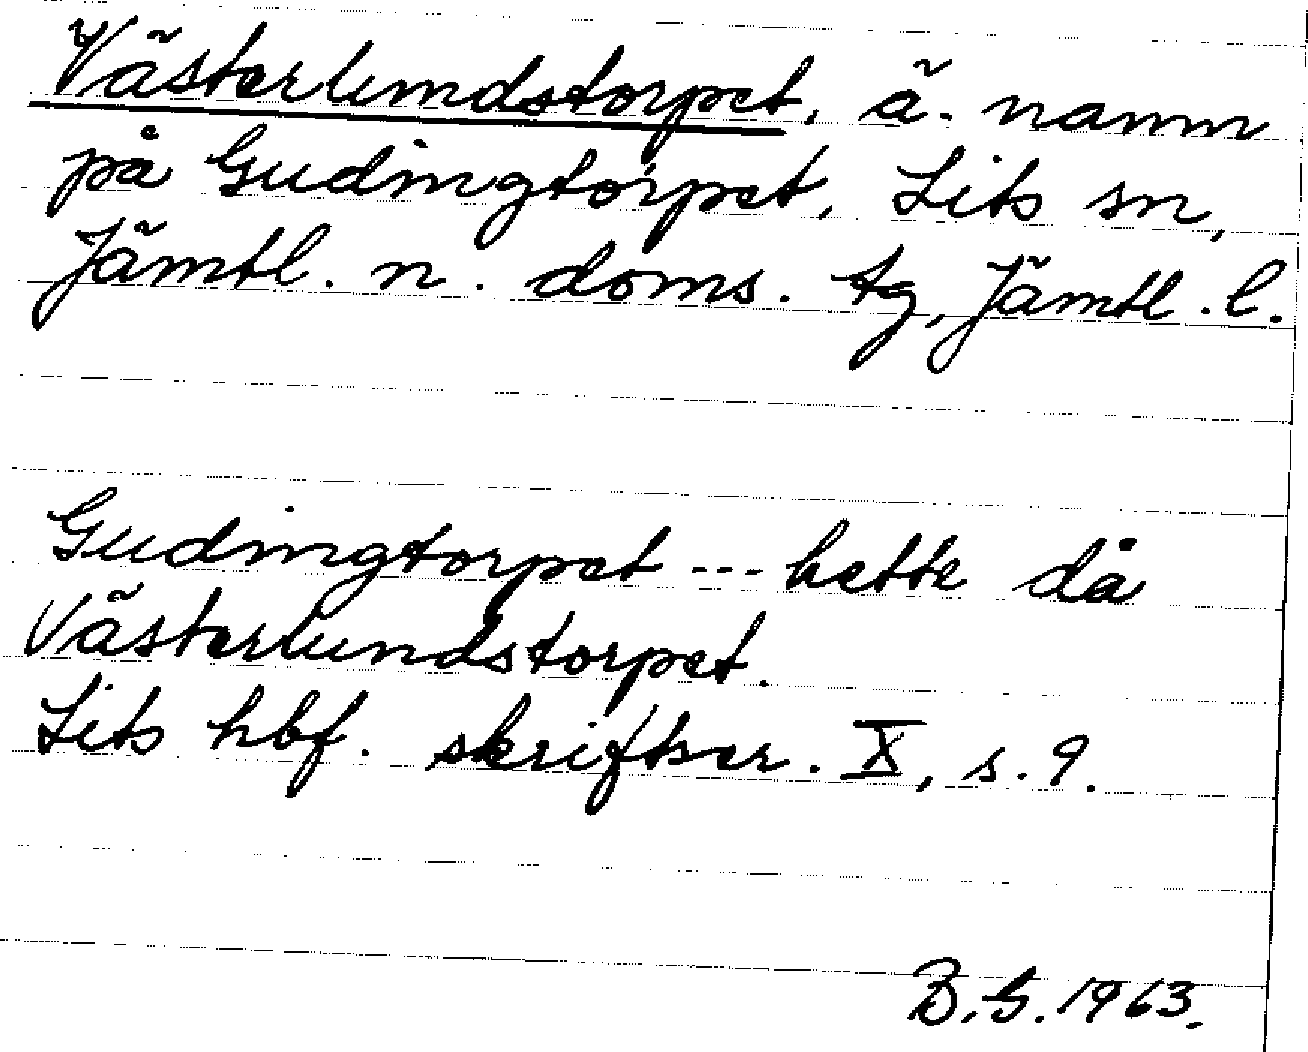 Västerlundstorpet, ä. namn
på Gudingtorpet, Lits sn,
Jämtl. n. doms. tg, Jämtl. l.
Gudingtorpet --- hette då
Västerlundstorpet.
Lits hbf. skriftser. X, s. 9.
B.G. 1963.